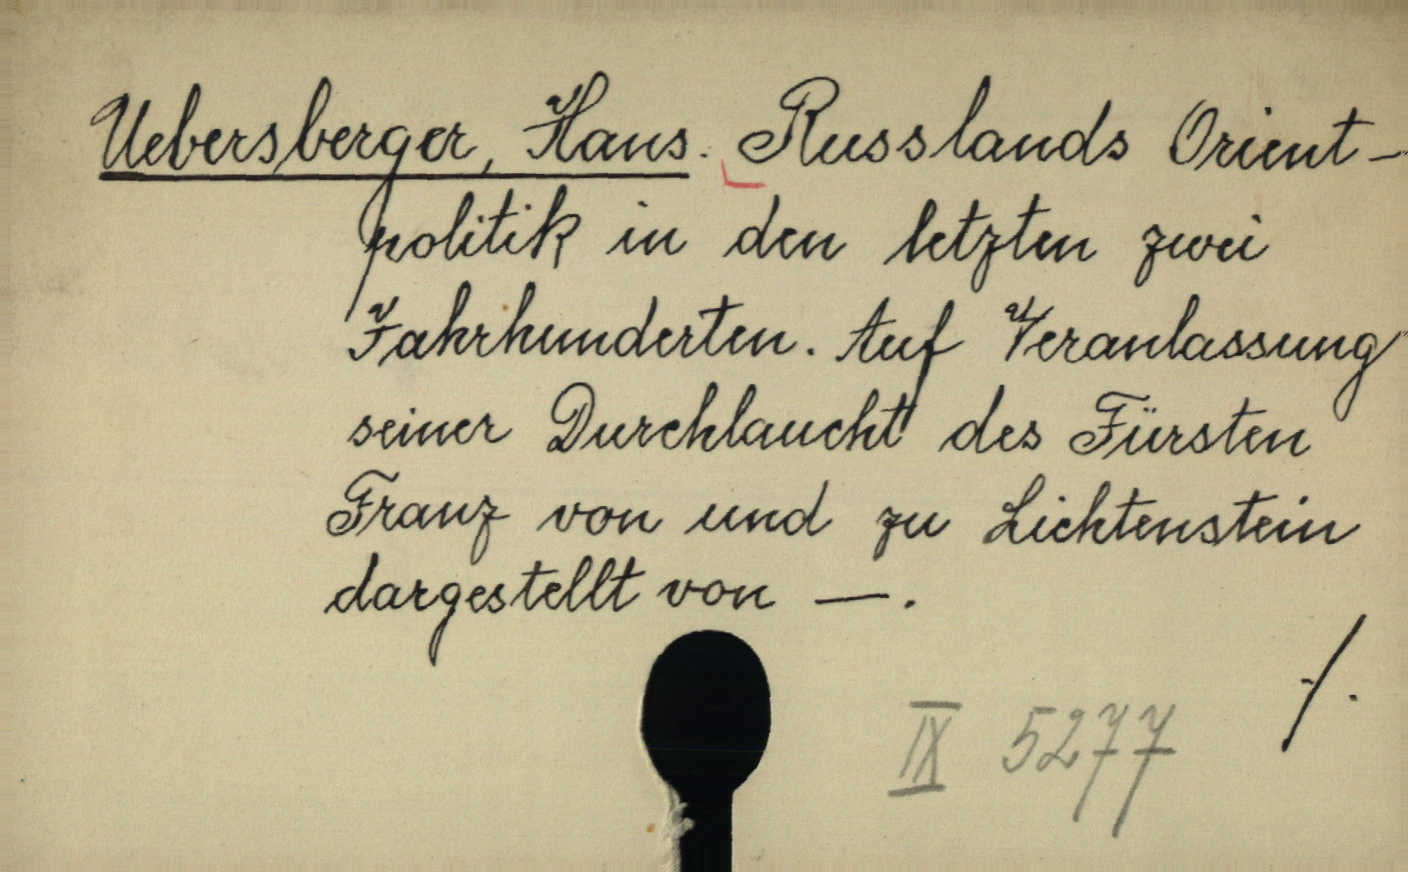 Uebersberger, Hans. Russlands Orient-
politik in den letzten zwei
Jahrhunderten. Auf Veranlassung
seiner Durchlaucht des Fürsten
Franz von und zu Lichtenstein
dargestellt von —.
./.
IX 5277